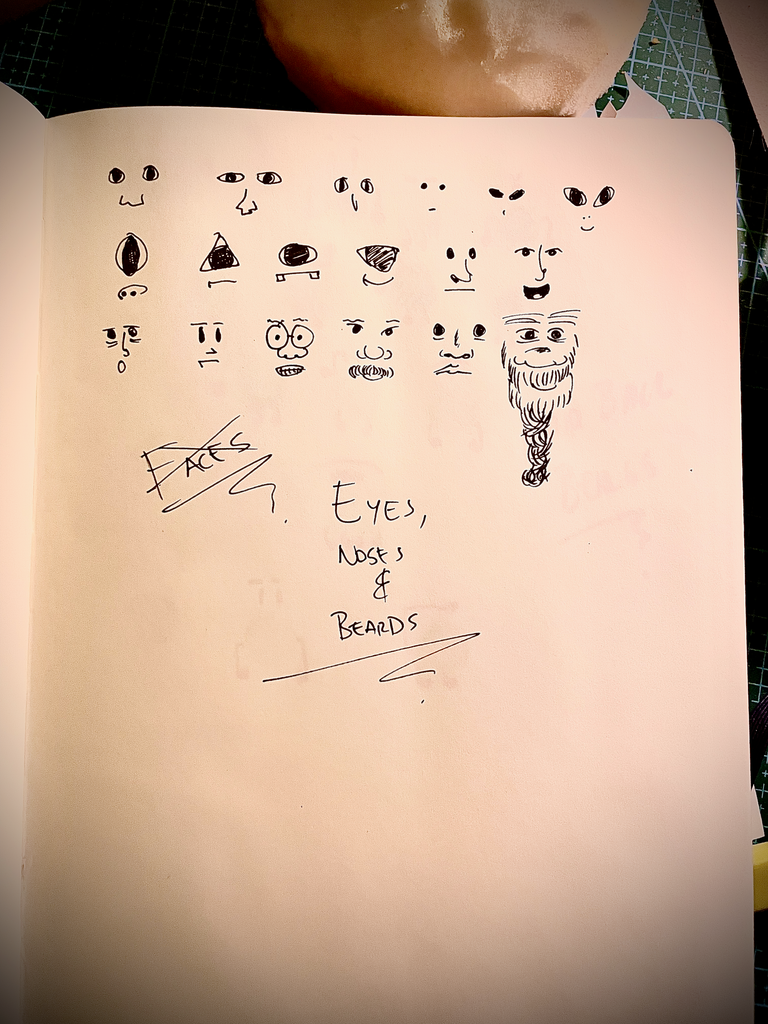 FACES
EYES,
NOSES
&
BEARDS